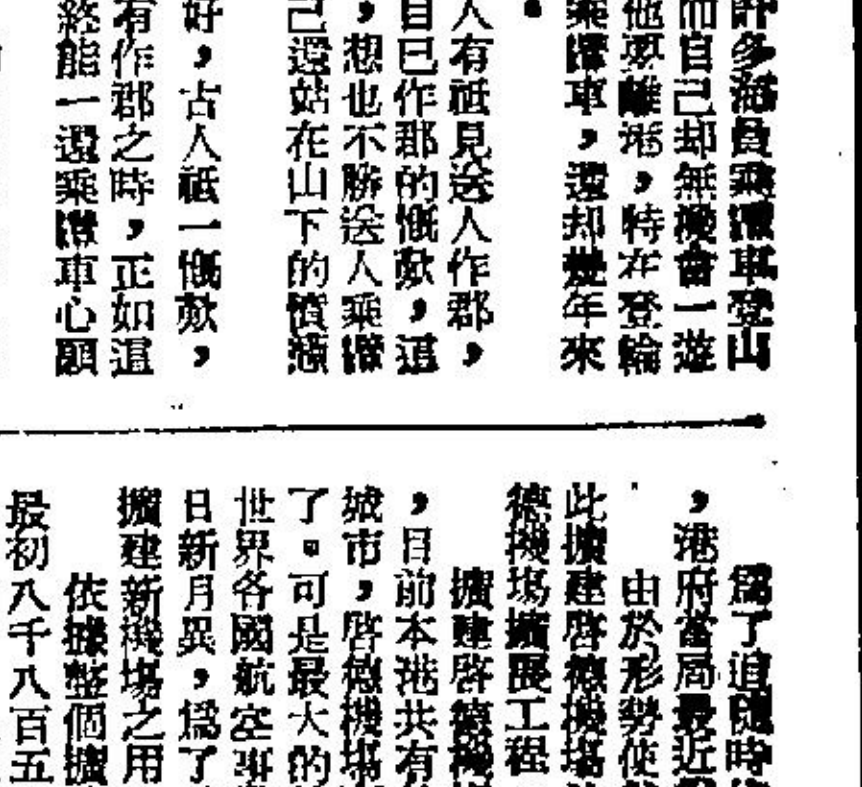 許多海員乘纜車登山
而自己却無機會一遊
他要離港，特在登輪
乘纜車，還却幾年來
。
人有祗見送人作郡，
自己作郡的慨歎，這
，想也不勝送人乘纜
己還站在山下的憤懣
好，古人祗一慨歎，
有作郡之時，正如這
終能一還乘纜車心願
爲了追隨時
，港府當局最近
由於形勢使
此擴建啓德機塲
德機塲擴展工程
擴建啓德機
，目前本港共有
城市，啓德機塲
了。可是最大的
世界各國航空事
日新月異，爲了
擴建新機塲之用
依據整個擴
最初八千八百五